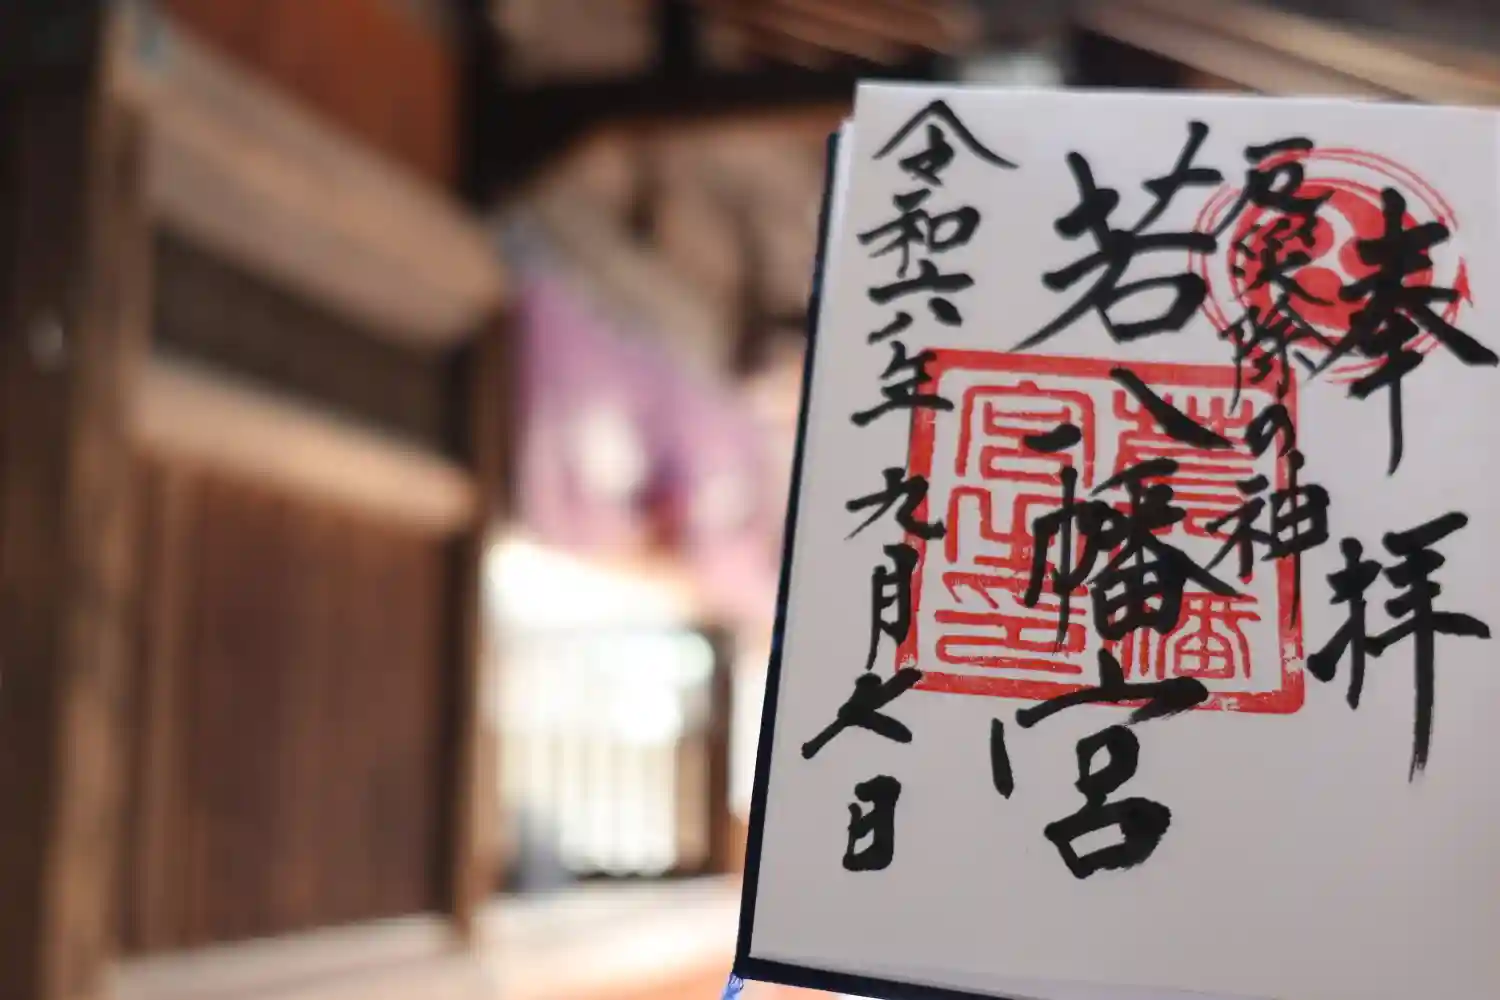 奉拝
厄災除の神
若八幡宮
若八幡宮之印
令和六年九月七日